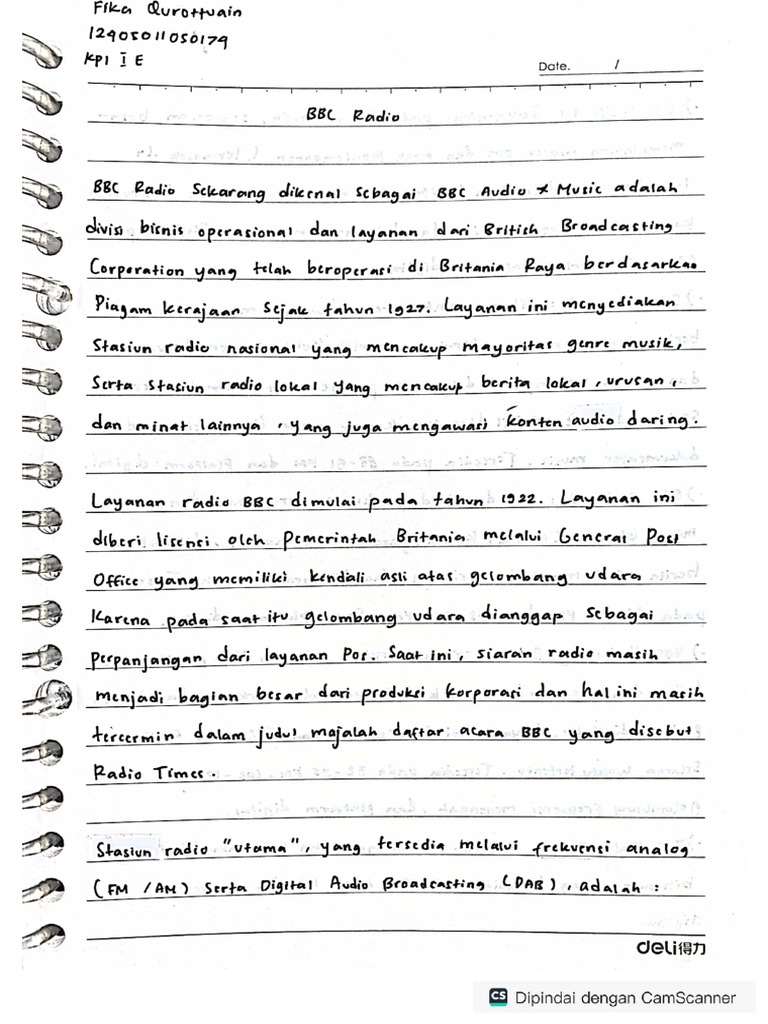 Fika Qurottuain
12405011050179
KPI I E
Date. /
BBC Radio
BBC Radio Sekarang dikenal sebagai BBC Audio & Music adalah
divisi bisnis operasional dan layanan dari British Broadcasting
Corporation yang telah beroperasi di Britania Raya berdasarkan
Piagam kerajaan Sejak tahun 1927. Layanan ini menyediakan
Stasiun radio nasional yang mencakup mayoritas genre musik,
Serta Stasiun radio lokal yang mencakup berita lokal, urusan,
dan minat lainnya, yang juga mengawasi konten audio daring.
Layanan radio BBC dimulai pada tahun 1922. Layanan ini
diberi lisensi oleh Pemerintah Britania melalui General Post
Office yang memiliki kendali asli atas gelombang udara
Karena pada saat itu gelombang udara dianggap sebagai
Perpanjangan dari layanan Pos. Saat ini, siaran radio masih
menjadi bagian besar dari produksi korporasi dan hal ini masih
tercermin dalam judul majalah daftar acara BBC yang disebut
Radio Times.
Stasiun radio "utama", yang tersedia melalui frekuensi analog
(FM /AM) Serta Digital Audio Broadcasting (DAB), adalah :
deli得力
CS Dipindai dengan CamScanner